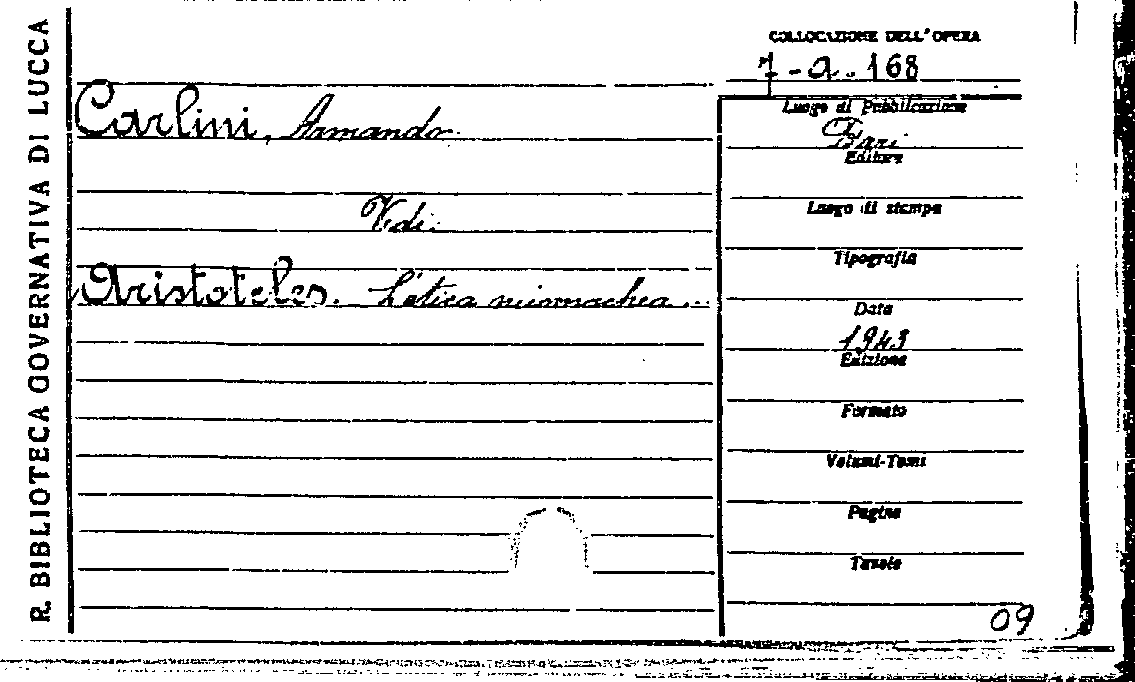 R. BIBLIOTECA GOVERNATIVA DI LUCCA
COLLOCAZIONE DELL'OPERA
7-a.168
Carlini, Armando.
Vedi:
Aristoteles. L'etica nicomachea...
Luogo di Pubblicazione
Bari
Editore
Luogo di stampa
Tipografia
Data
1943
Edizione
Formato
Volumi-Tomi
Pagine
Tavole
09